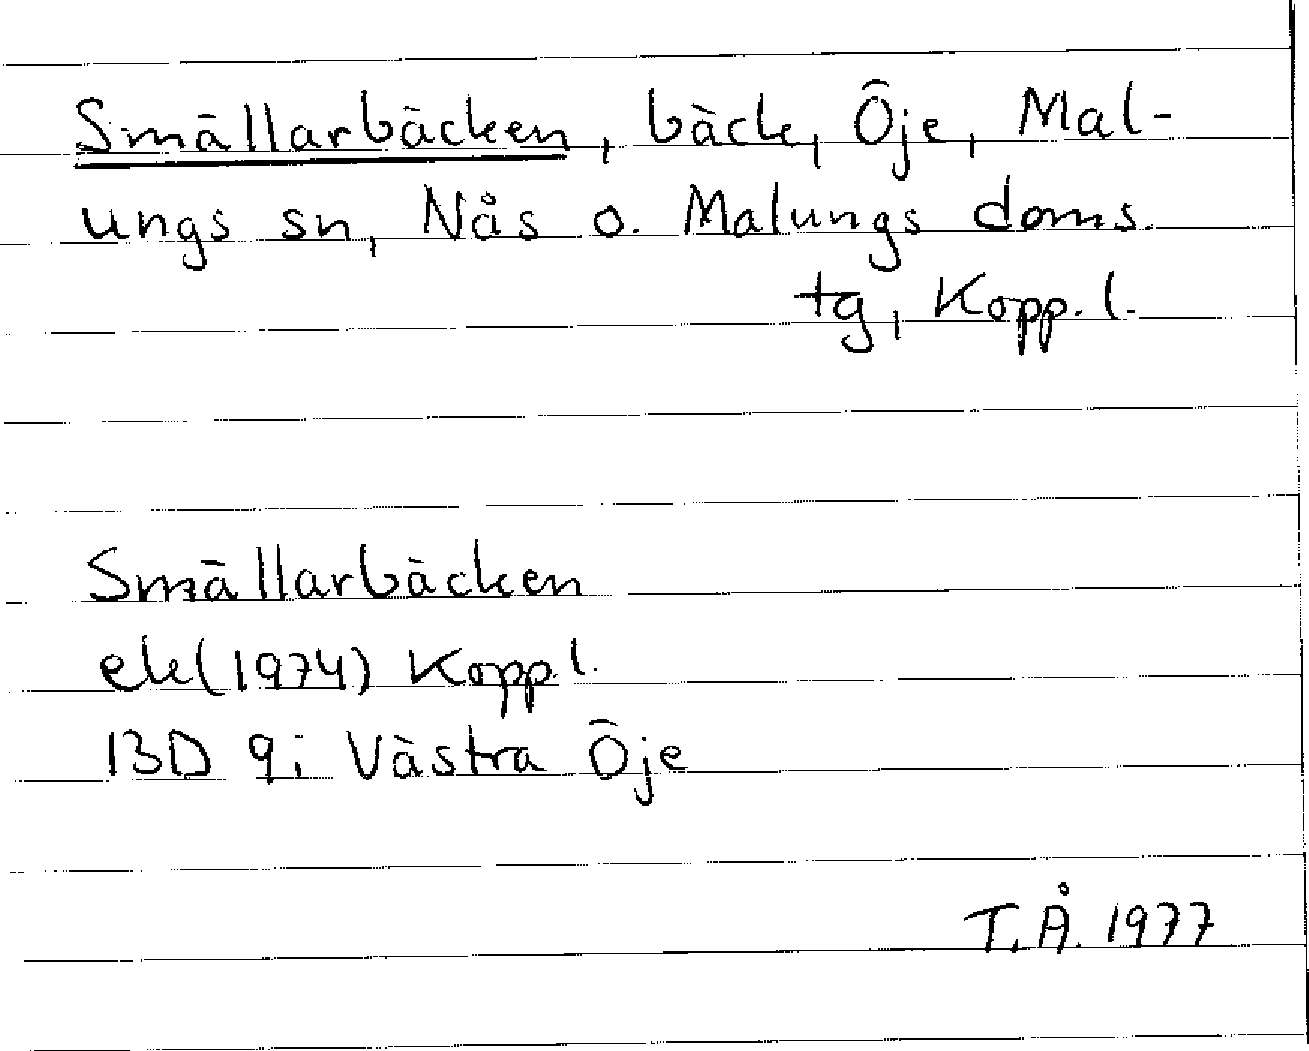 Smällarbäcken, bäck, Öje, Mal-
ungs sn, Nås o. Malungs doms.
tg, Kopp. l.
Smällarbäcken
ek(1974) Kopp l.
13D 9i Västra Öje
T.Å. 1977